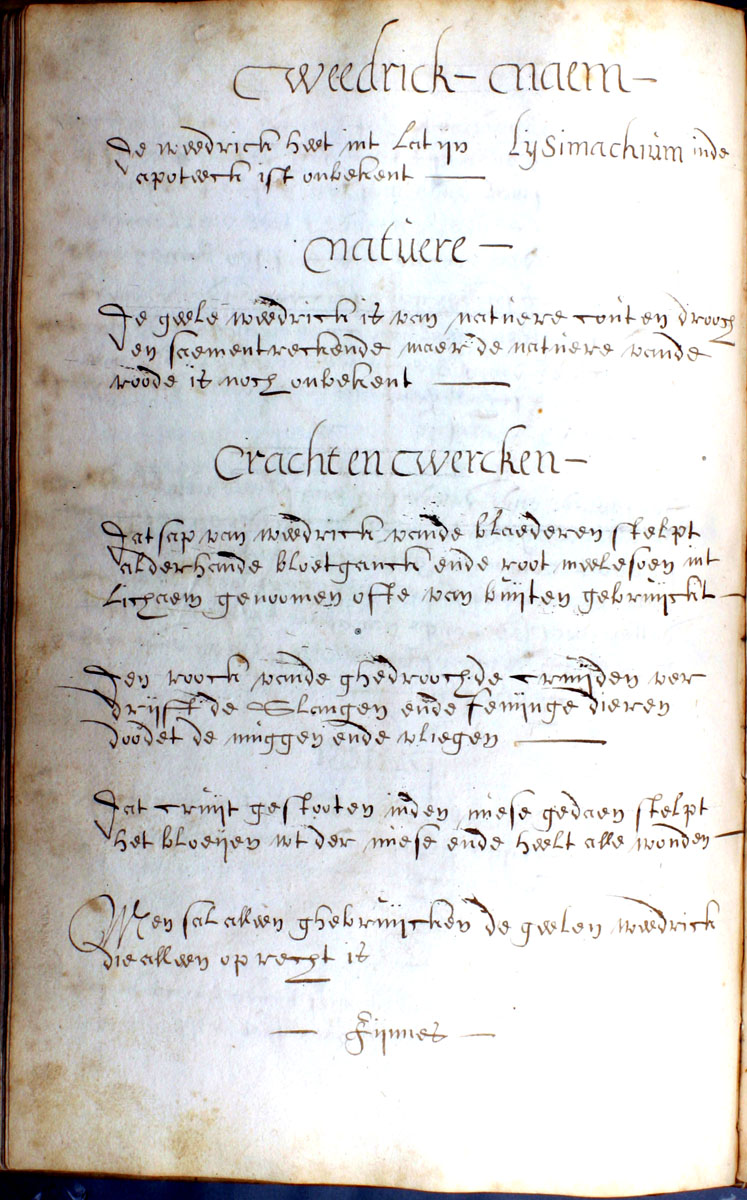 Weedrick - Naem -
De weedrick heet int latijn Lysimachium inde
apoteeck ist onbekent -
Natuere -
De geele weedrick is van natuere cout en drooch
en saementreckende maer de natuere vande
roode is noch onbekent -
Cracht en Wercken -
Dat sap van weedrick vande blaederen stelpt
alderhande bloetganck ende root meelesoen int
lichaem genoomen ofte van buijten gebruijckt -
Den roock vande ghedroochde cruijden ver
drijft de Slangen ende feninge dieren
doodet de muggen ende vliegen -
Dat cruijt gestooten inden niese gedaen stelpt
het bloeijen wt der niese ende heelt alle wonden -
Men sal alleen ghebruijcken de geelen weedrick
die alleen oprecht is
- Fijnnes -